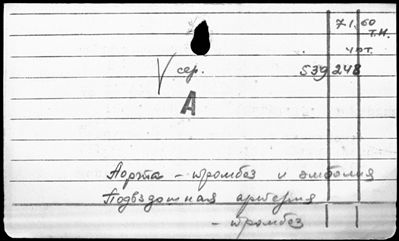 71.60
т.н.
чрт.
V сер. 539248
А
Аорта - тромбоз и эмболия
Подвздошная артерия
- тромбоз